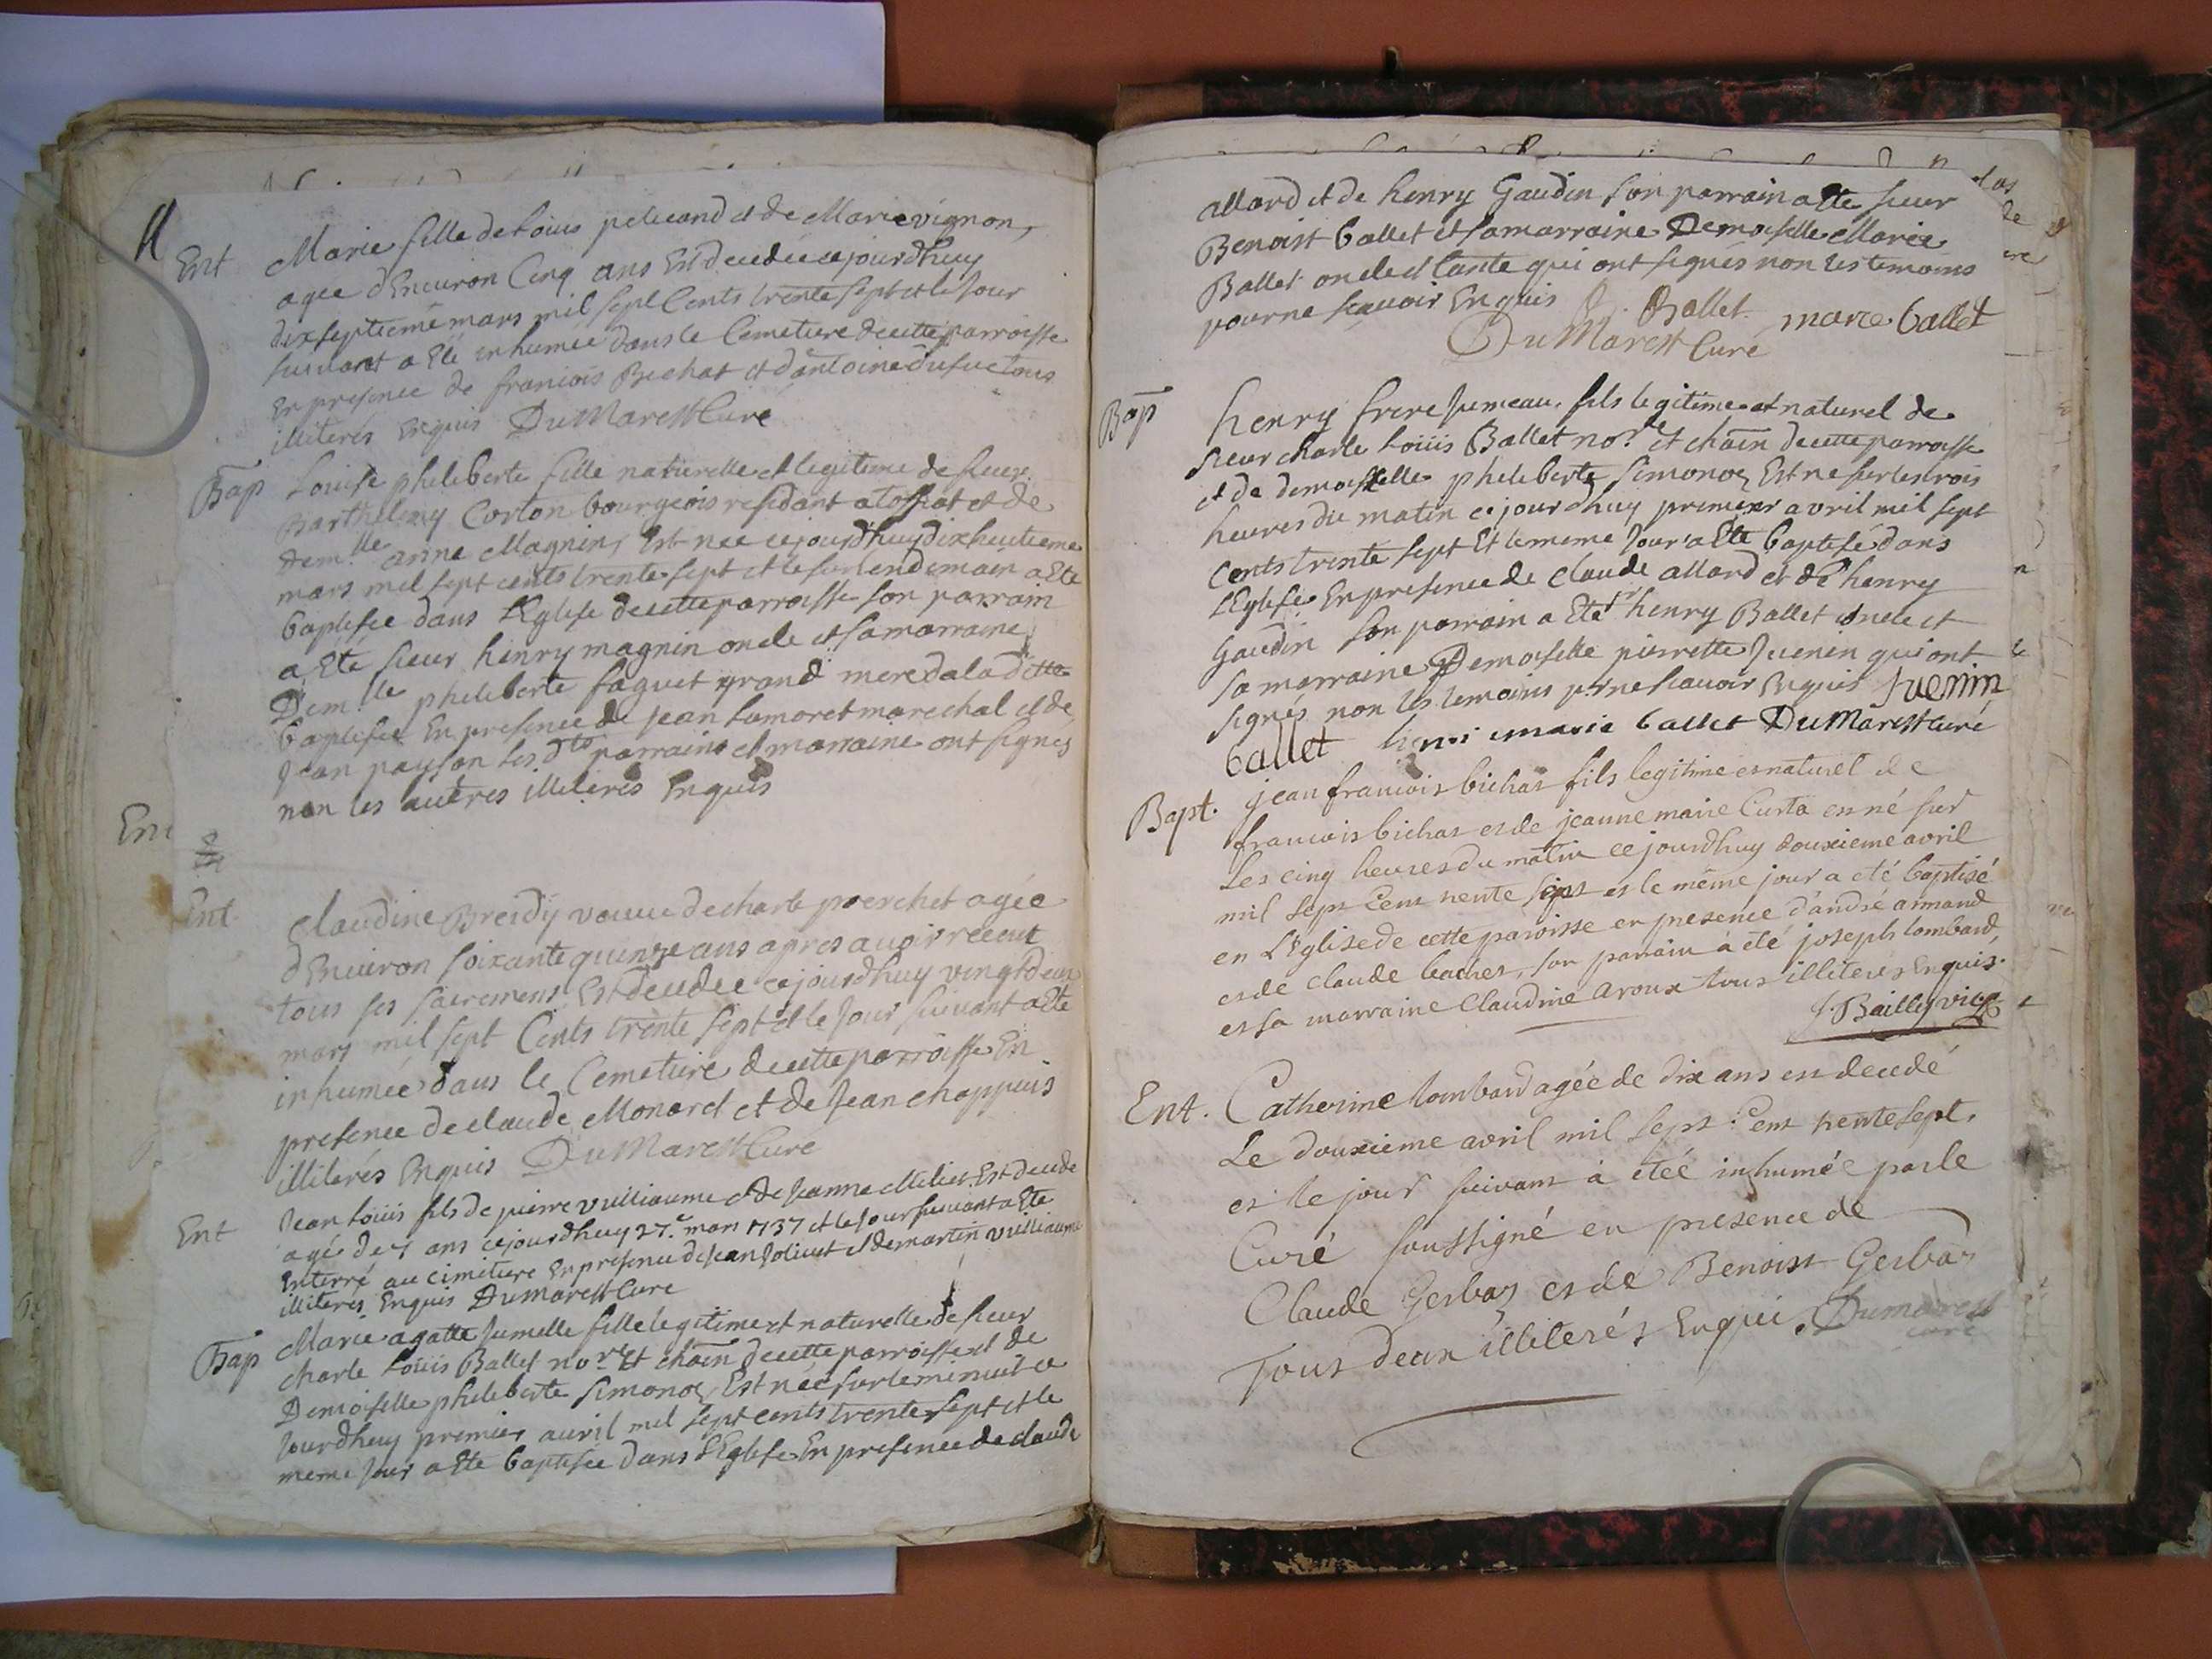 Ent Marie fille de Loüis pelicand et de Marie vignon,
agée d'Environ Cinq ans Est decedée cejourdhuy
dixseptieme mars mil sept Cents trente sept et le Jour
suivant a Eté inhumée dans le Cemetiere decette parroisse
En presence de francois Bechat et d'antoine dufuc tous
illiterés Enquis DuMarest Curé
Bap Louise pheliberte fille naturelle et legitime de sieur
Barthelemy Corton bourgeois residant a tossiat et de
dem.lle anne Magnin, Est née cejourdhuy dixhuitieme
mars mil sept cents trente sept et le surlendemain a Eté
baptisée dans l'Eglise decette parroisse son parrain
a Eté sieur henry magnin oncle et sa marraine
Dem.lle pheliberte faguet grand mere dela ditte
baptisée En presence de jean Lamoret marechal et de
Jean payson les dts parrains et marraine ont signés
non les autres illiterés Enquis
Ent
Ent Claudine Breidy veuve de charle perrchet agée
d'Environ soixante quinze ans apres avoir receut
tous ses sacremens Est decedée cejourdhuy vingtdeux
mars mil sept Cents trente sept et le Jour suivant a Eté
inhumée dans le Cemetiere decette parroisse En
presence de claude Monard et de Jean chappuis
illiterés Enquis DuMarest Curé
Ent Jean Loüis fils de pierre vuilliaume et de Jeanne Meliet Est decede
agé de 7 ans cejourdhuy 27.e mars 1737 et le Jour suivant a Eté
Enterré au cimetiere En presence de Jean Jolivet et de martin vuilliaume
illiterés Enquis DuMarest Cure
Bap Marie agatte Jumelle fille légitime et naturelle de sieur
charle Loüis Ballet no.re Et chãin decette parroisse et de
Demoiselle pheliberte simonoz, Est née sur le minuit ce
Jourdhuy premier avril mil sept cents trente sept et le
meme Jour a Eté baptisée dans l'Eglise En presence de claude
allard et de henry Gaudin son parrain a Eté sieur
Benoist ballet et sa marraine Demoiselle Marie
Ballet oncle et tante qui ont signés non les temoins
pour ne scavoir Enquis B. Ballet marie ballet
DuMarest Curé
Bap henry frere Jumeau, fils legitime et naturel de
sieur charle Loüis Ballet no.re et chãin decette parroisse
et de demoiselle pheliberte simonoz Est né sur les trois
heures du matin cejourdhuy premier avril mil sept
Cents trente sept Et le meme Jour a Eté baptisé dans
l'Eglise En presence de claude allard et de henry
Gaudin son parrain a Eté sr henry Ballet oncle et
sa marraine Demoiselle pierrette Juenin qui ont
signés non les temoins pr ne scavoir Enquis Juenin
ballet henri marie ballet DuMarest curé
Bapt. jean francois bichat fils legitime et naturel de
francois bichat et de jeanne marie Curta est né sur
Les cinq heures du matin cejourdhuy douxieme avril
mil sept Cent trente sept et le même jour a eté baptisé
en L'Eglise de cette paroisse en presence d'andré armand
et de claude bacher, son parrain à eté joseph lombard,
et sa marraine Claudine aroux tous illiterés Enquis.
f. Bailly vic.
Ent. Catherine lombard agée de dix ans est decedé
Le douxieme avril mil sept Cent trente sept,
et le jour suivant à eteé inhumée par le
Curé soussigné en presence de
Claude Gerbaz et de Benoist Gerbaz
Tous deux illiterés Enquis. Dumarest
curé